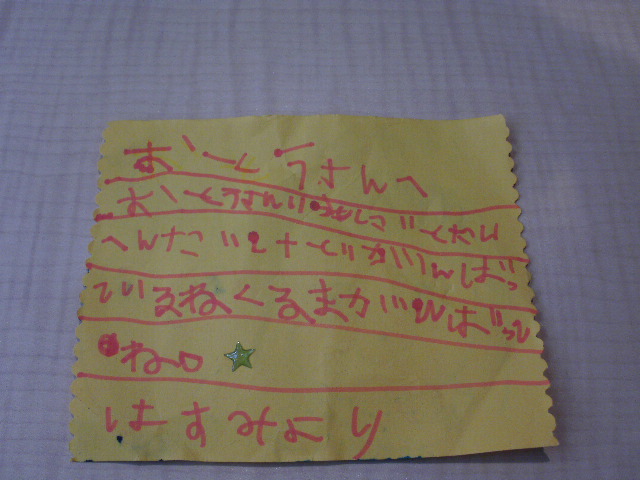 おとうさんへ
おとうさんいつもしごとたい
へんだいてすとがんばっ
ているねくるまがんばって
ね。
はすみより